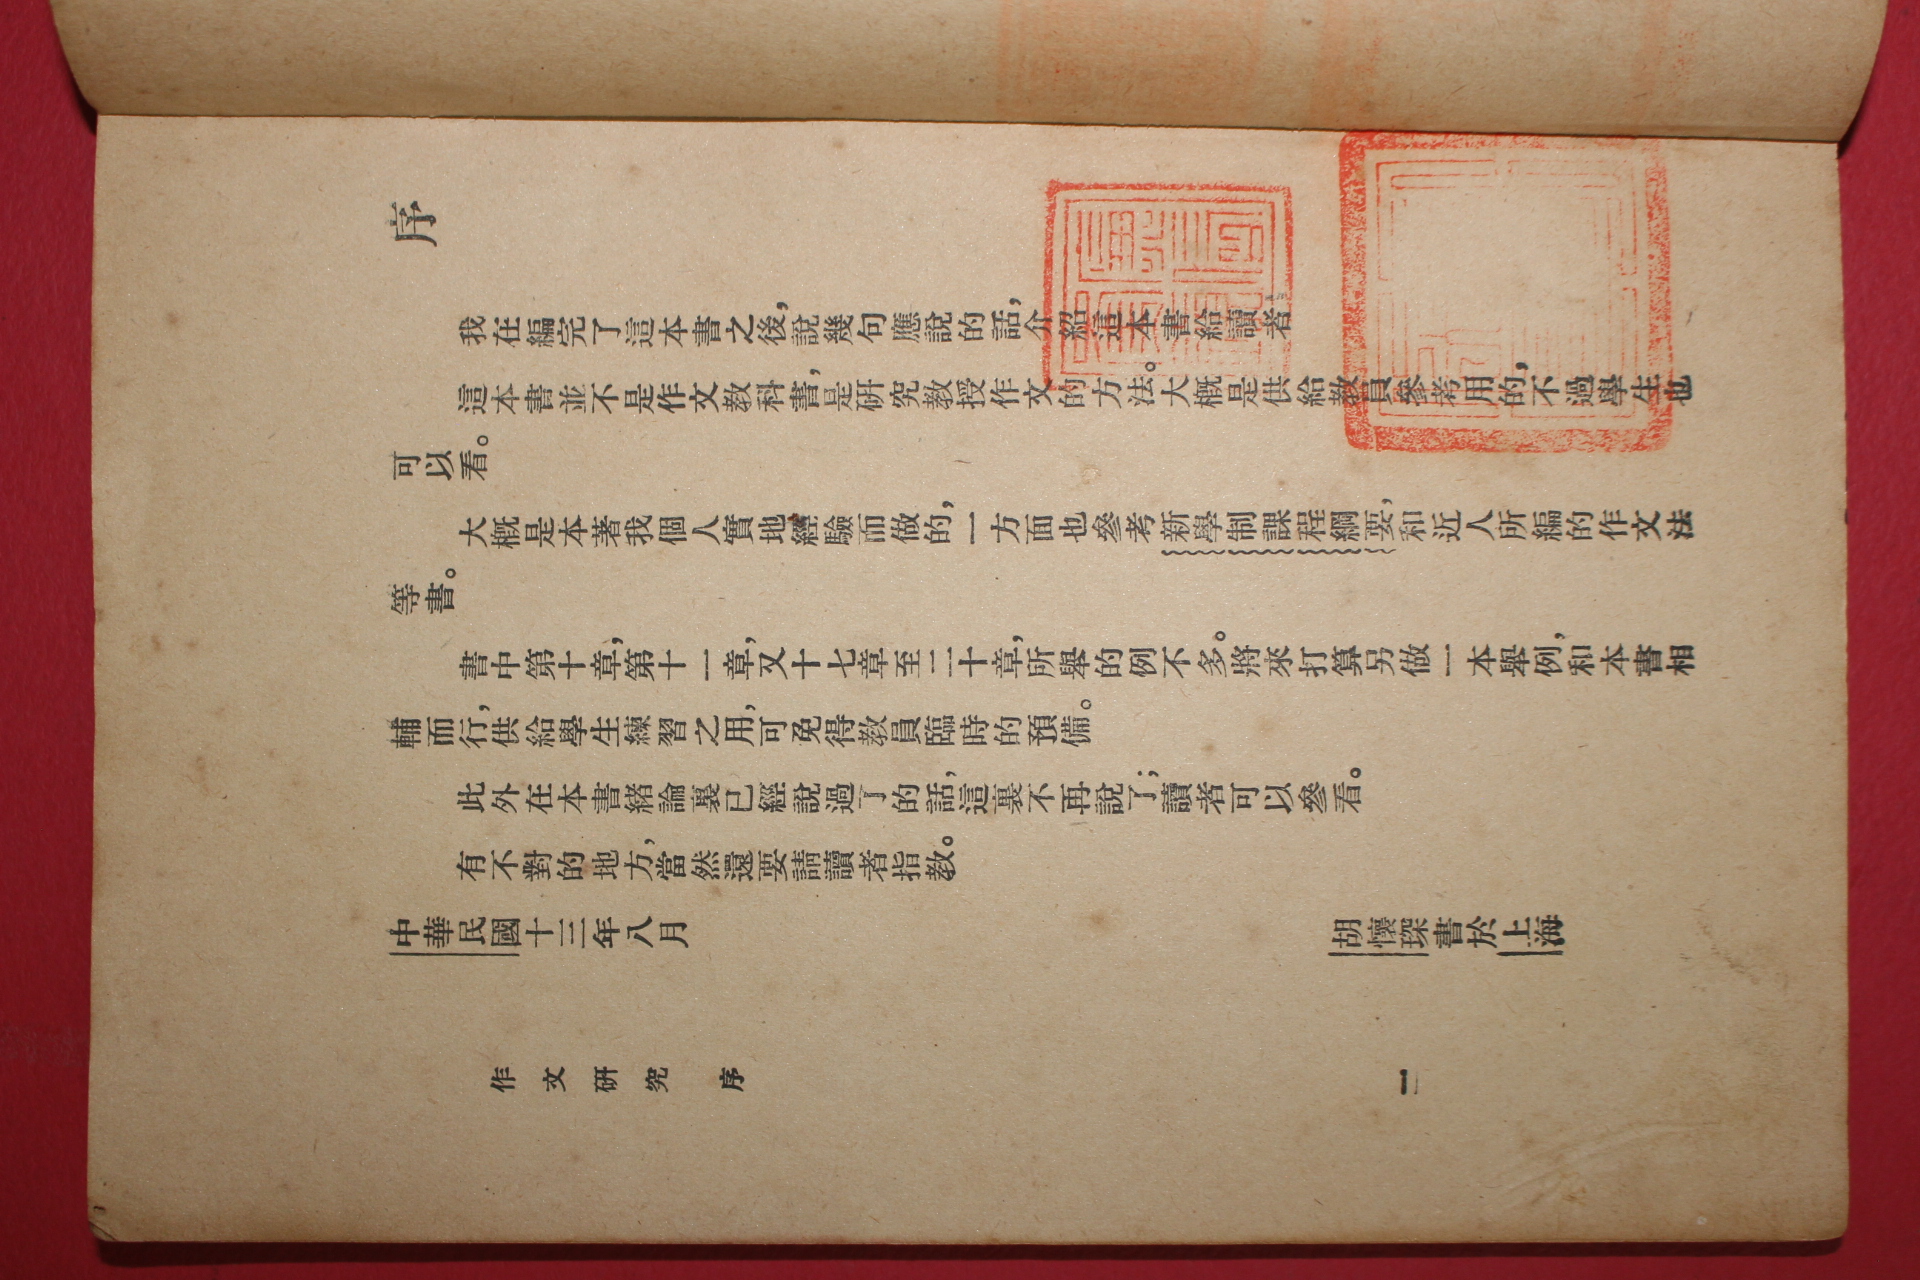 序
我在編完了這本書之後，說幾句應說的話，介紹這本書給讀者
這本書並不是作文教科書，是研究教授作文的方法。大概是供給教員參考用的，不過學生也
可以看。
大概是本著我個人實地經驗而做的，一方面也參考新學制課程綱要，和近人所編的作文法
等書。
書中第十章，第十一章，又十七章至二十章，所舉的例不多。將來打算另做一本舉例，和本書相
輔而行，供給學生練習之用，可免得教員臨時的預備。
此外在本書緒論裏已經說過了的話，這裏不再說了；讀者可以參看。
有不對的地方，當然還要請讀者指教。
中華民國十三年八月
胡懷琛書於上海
作文研究 序
一